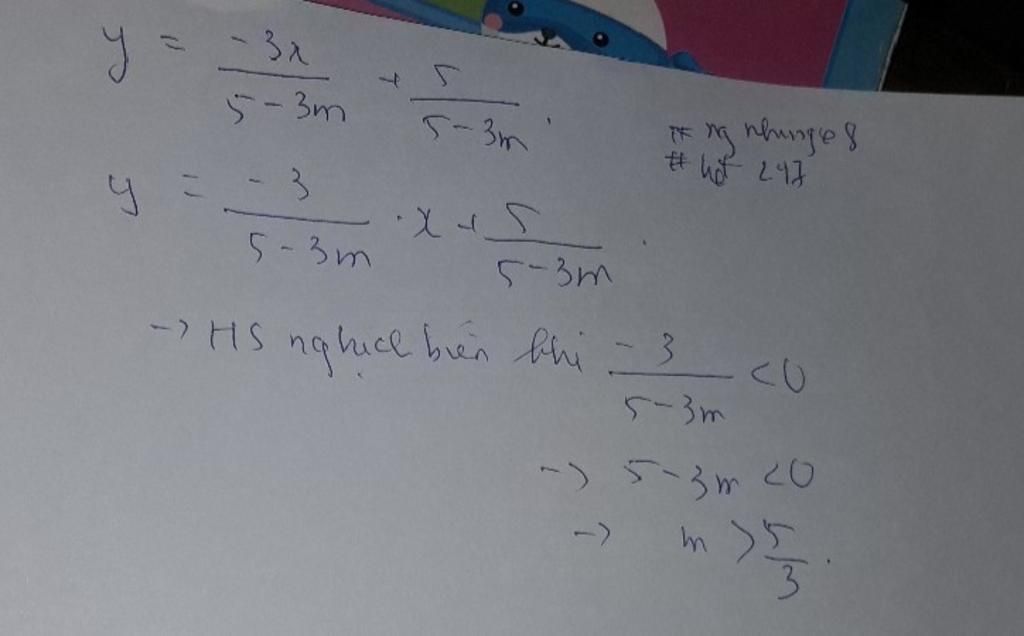 y = -3x/(5-3m) + 5/(5-3m).
# ng nhunge8
# hot 247
y = -3/(5-3m) . x + 5/(5-3m).
-> HS nghịch biến khi -3/(5-3m) <0
-> 5-3m <0
-> m > 5/3.